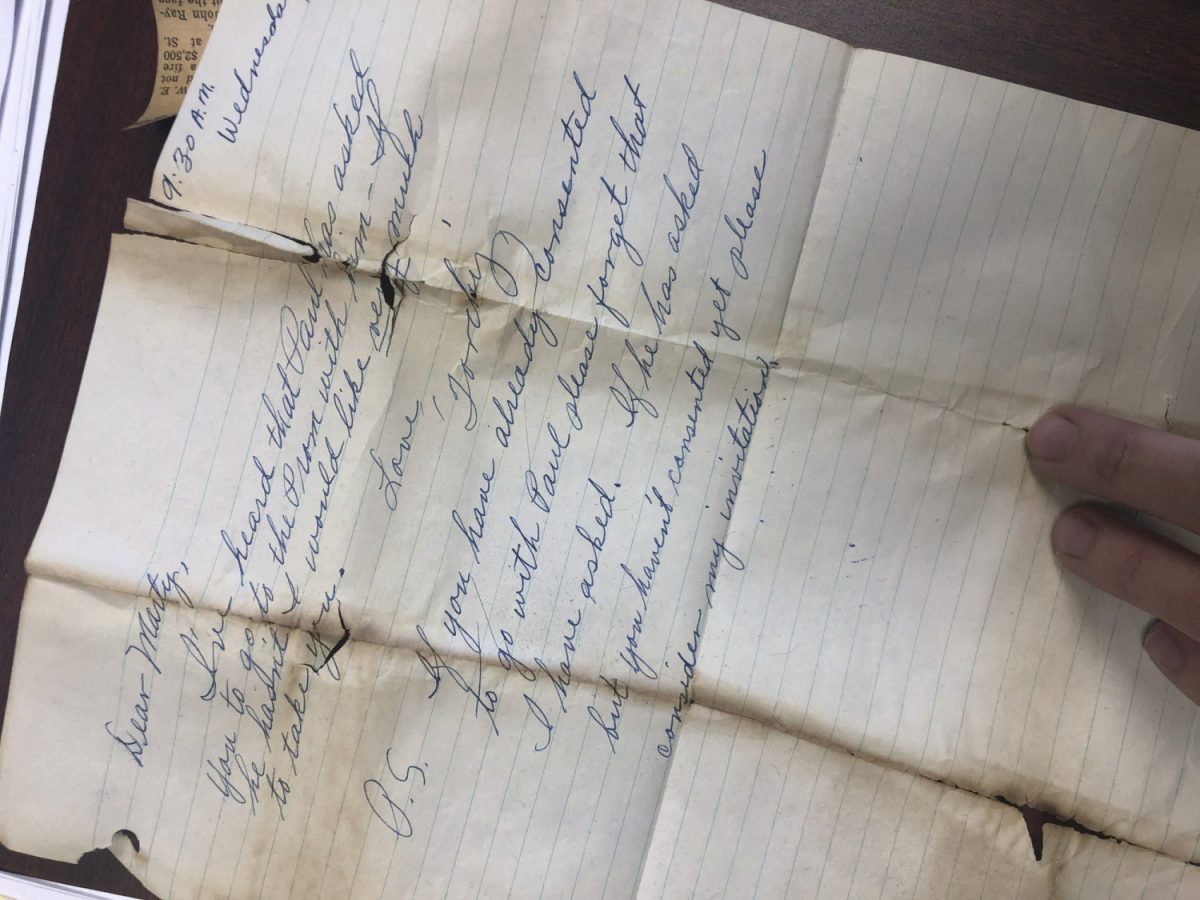 9:30 A.M.
Wednesda
Dear Marty,
I've heard that Paul has asked
you to go to the Prom with him - If
he hasn't I would like very much
to take you.
Love,
P.S. If you have already consented
to go with Paul please forget that
I have asked. If he has asked
but you haven't consented yet please
consider my invitation.
ot the face
John Ray-
at St.
$2,500
a fire
d not
W. E.